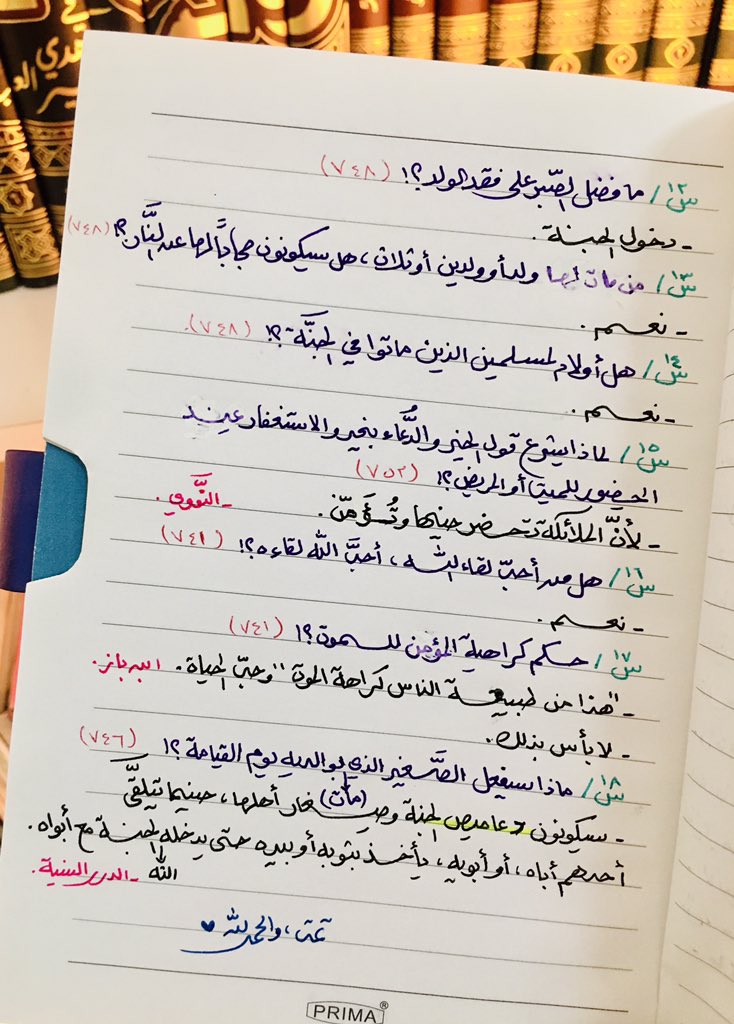 س١٢/ ما فضل الصّبر على فقد الولد؟! (٧٤٨)
ـ دخول الجنة.
س١٣/ من مات لها ولد أو ولدين أو ثلاث، هل سيكونون حجاباً لها عن النَّار؟! (٧٤٨)
ـ نعم.
س١٤/ هل أولاد المسلمين الذين ماتوا في الجنَّة؟! (٧٤٨).
ـ نعم.
س١٥/ لماذا يشرع قول الخير والدُّعاء بخير والاستغفار عند
الحضور للميت أو المريض؟! (٧٥٢)
ـ لأنَّ الملائكة تحضر حينها وتُؤَمّن. ـ النَّووي.
س١٦/ هل من أحبّ لقاء الله، أحبَّ الله لقاءه؟! (٧٤١)
ـ نعم.
س١٧/ حكم كراهية المؤمن للموت؟! (٧٤١)
ـ "هذا من طبيعة الناس كراهة الموت" وحبّ الحياة. ابن باز.
ـ لا بأس بذلك.
س١٨/ ماذا سيفعل الصَّغير الذي بوالديه يوم القيامة؟! (٧٤٦)
(مات)
ـ سيكونون دعاميص الجنة وصغار أهلها، حينما يتلقَّى
أحدهم أباه، أو أبويه، يأخذ بثوبه أو بيده حتى يدخله الجنة مع أبواه.
الله ـ الدرر السنية.
تمت، والحمدلله ♥
PRIMA®
في